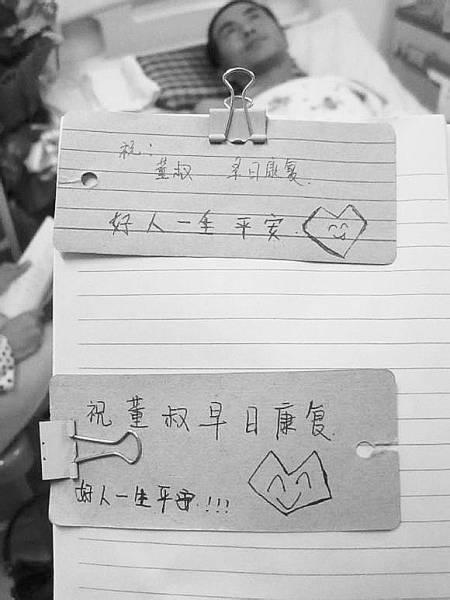 祝：
董叔 早日康复.
好人一生平安.
祝董叔早日康复.
好人一生平安.!!!